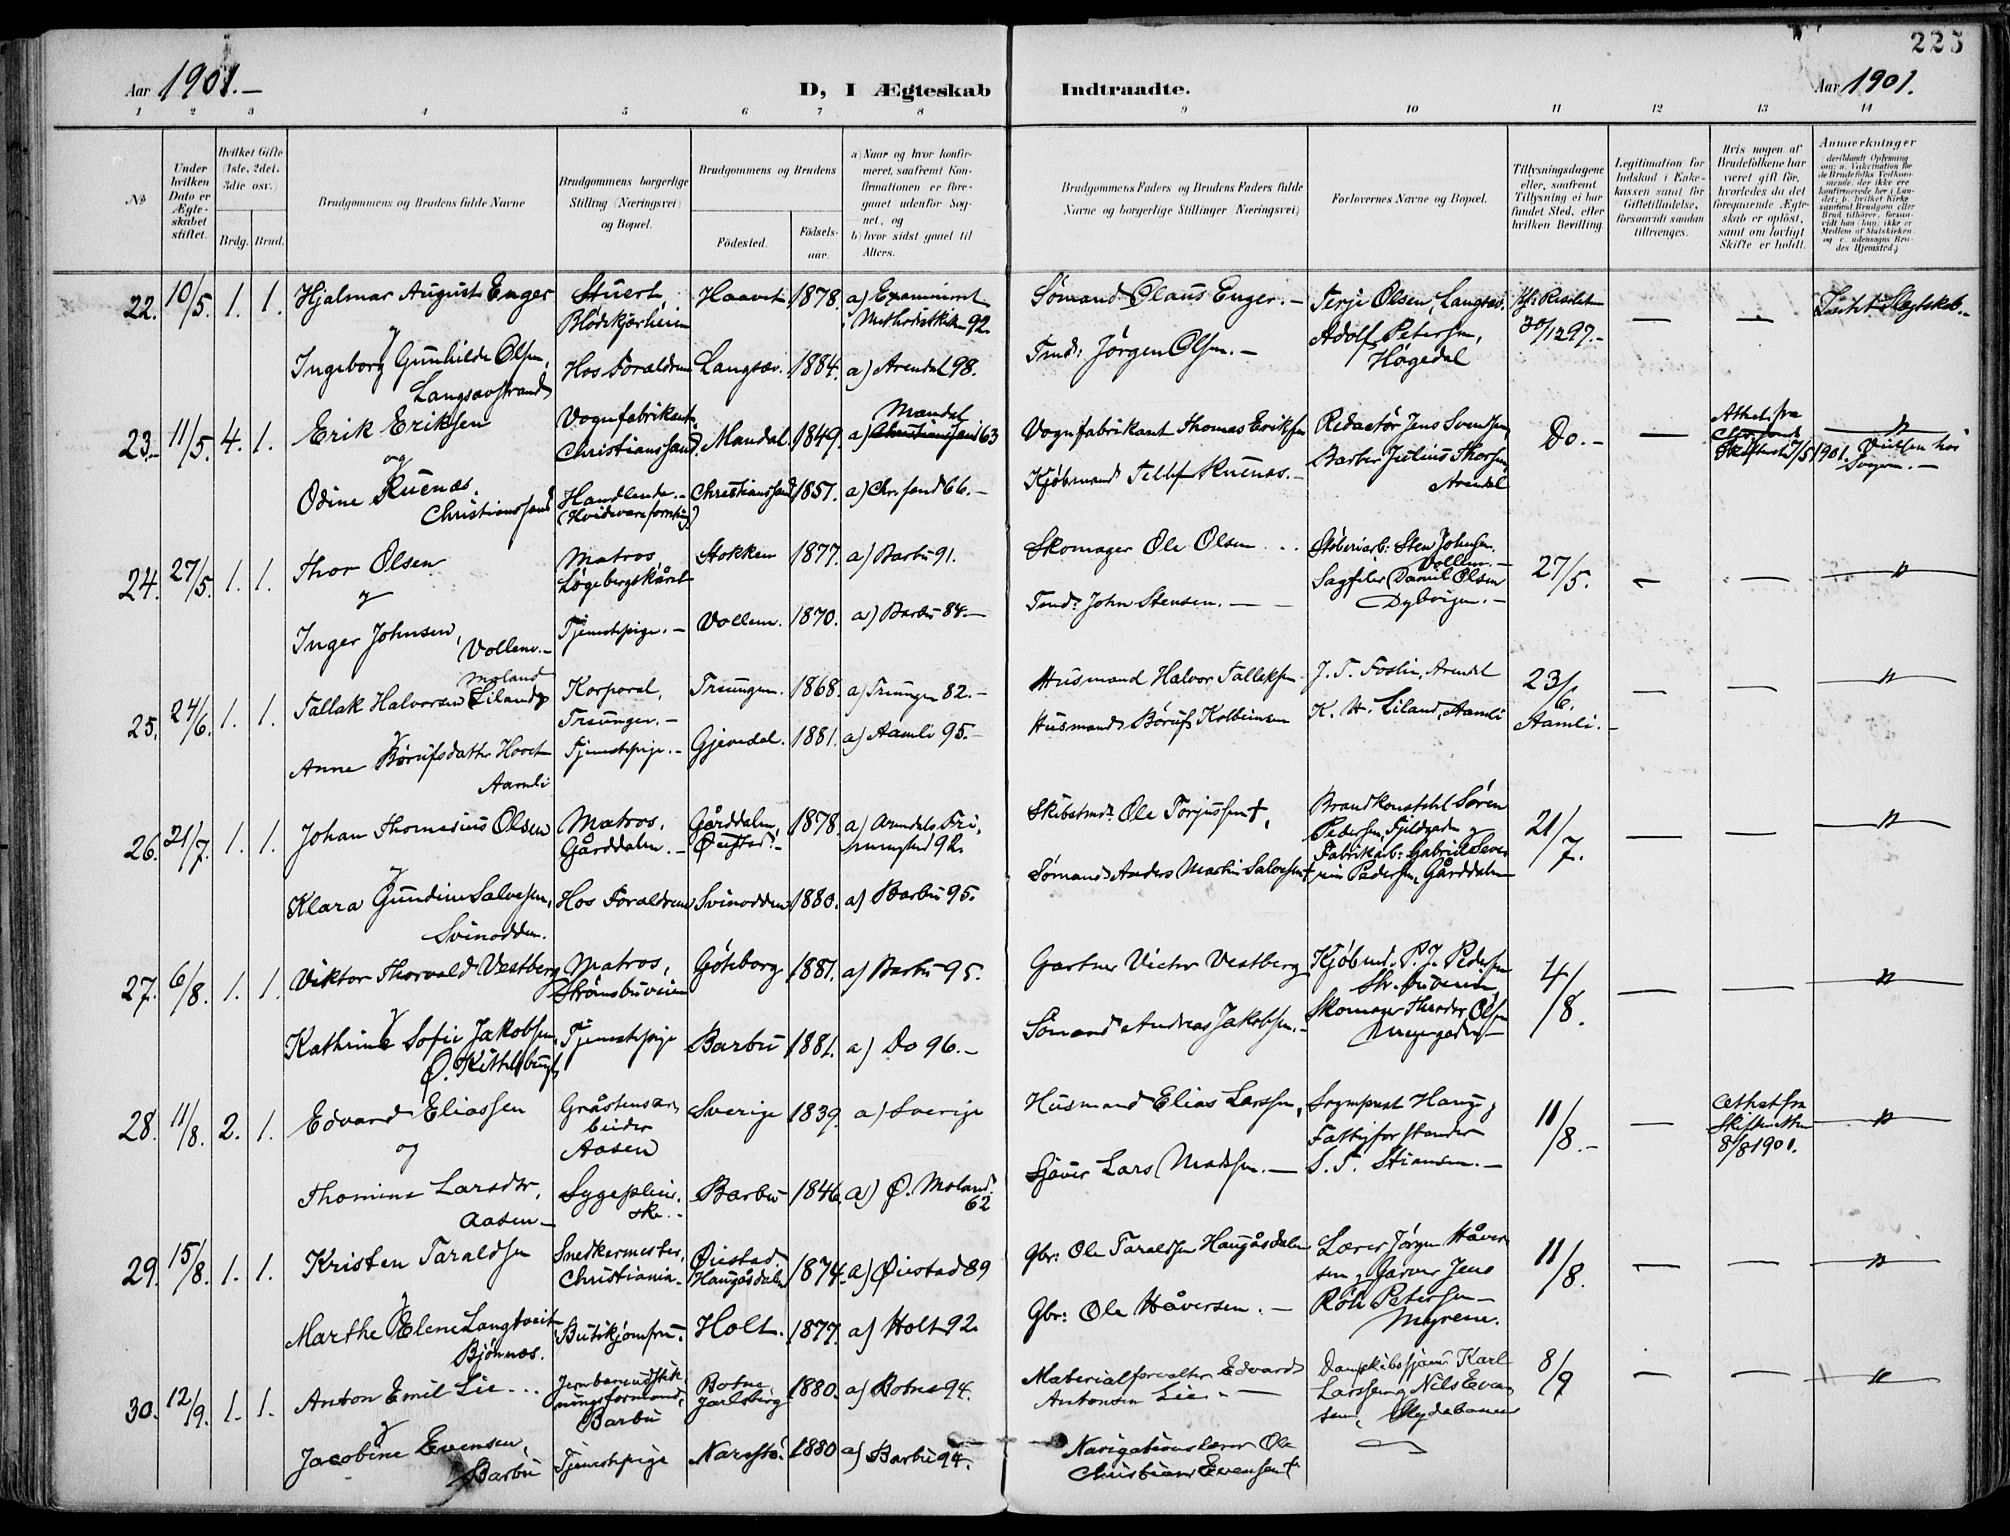 225
Aar 1901.–
D, I Ægteskab Indtraadte.
Aar 1901.
1 2 3 4 5 6 7 8 9 10 11 12 13 14
No
Under hvilken Dato er Ægteskabet stiftet.
Hvilket Gifte (1ste, 2det, 3die osv.)
Brdg. Brud.
Brudgommens og Brudens fulde Navne
Brudgommens borgerlige Stilling (Næringsvei) og Bopæl.
Brudgommens og Brudens
Fødested.
Fødselsaar.
a) Naar og hvor konfirmeret, saafremt Konfirmationen er foregaaet udenfor Sognet, og
b) hvor sidst gaaet til Alters.
Brudgommens Faders og Brudens Faders fulde Navne og borgerlige Stillinger (Næringsvei)
Forlovernes Navne og Bopæl.
Tillysningsdagene eller, saafremt Tillysning ei har fundet Sted, efter hvilken Bevilling.
Legitimation for Indskud i Enkekassen samt for Giftetilladelse, forsaavidt saadan tiltrænges.
Hvis nogen af Brudefolkene har været gift før, hvorledes da det foregaaende Ægteskab er opløst, samt om lovligt Skifte er holdt.
Anmærkninger
22. 10/5. 1. 1. Hjalmar August Enger Stuert, Haavet 1878. a) Examineret Sømand Olaus Enger.– Terje Olsen, Langsæv. — —
Methodistkirken 92 Adolf Petersen, 30/12 97.–
&
Ingeborg Gunhilde Olsen, Hos Forældrene Langsæv. 1884. a) Arendal 98. Tmd: Jørgen Olsen.– Høgedal
Langsævstrand
23. 11/5. 4. 1. Erik Eriksen Vognfabrikant, Mandal. 1849. a) Mandal 63 Vognfabrikant Thomas Eriksen Redactør Jens Svendsen, Do.– — Attest fra
Christianssand. Christianssand Skifteret 7/5 1901.
og
Odine Ruenæs. Handlende.– Christianssand 1851. a) Chr.sand 66.– Kjøbmand Tellef Ruenæs.– Barber Julius Thorsen,
Christianssand Arendal
24. 27/5. 1. 1. Thor Olsen Matros Stokken 1877. a) Barbu 91. Skomager Ole Olsen Støberiarb: Sten Johnsen, 27/5. – — "
Løgebergskåret Vollene.–
& Sagfiler Daniel Olsen
Inger Johnsen, Tjenestepige.– Vollene. 1870. a) Barbu 84.– Tmd: John Stensen.– Dybvigen.–
Vollene.–
25. 24/6. 1. 1. Tallak Halvorsen Liland Korporal, Treungen. 1868. a) Treungen 82.– Husmand Halvor Tallaksen J. T. Foslie, Arendal 23/6. — — "
Moland Treungen.–
Anne Børufsdatter Hovet Tjenestepige.– Gjevedal. 1881. a) Aamli 95.– Husmand Børuf Kolbeinsen K. H. Liland, Aamli Aamli.–
Aamli
26. 21/7. 1. 1. Johan Thomasius Olsen Matros, Gårddalen, 1878. a) Arendals Fri. Skibstmd: Ole Torjussen †, Brandkonstabel Søren 21/7. — — "
Gårddalen.– Øiestad.– menighed 92. Pedersen, Fjeldgaden &
& Fabrikarb: Gabriel Seve-
Klara Gundine Salvesen, Hos Forældrene Svinodden 1880. a) Barbu 95. Sømand Anders Martin Salvesen † rin Pedersen, Gårddalen
Svinodden.
27. 6/8. 1. 1. Viktor Thorvald Vestberg Matros, Göteborg 1881. a) Barbu 95. Gartner Victor Vestberg Kjøbmd. P. J. Pedersen 4/8. — — "
Strømsbuveien
&
Kathrine Sofie Jakobsen, Tjenestepige Barbu 1881. a) Do 96.– Sømand Andreas Jakobsen.– Skomager Theodor Olsen
Ø. Kittelsbugt
28. 11/8. 2. 1. Edvard Eliassen Gråstensar- Sverige 1839. a) Sverige Husmand Elias Larssen, Sogneprest Haug & 11/8.– — Attest fra "
beider Fattigforstander Skifteretten
og Aasen S. T. Stiansen.– 8/8 1901.
Thomine Larsdtr, Sygepleier- Barbu 1846. a) Ø. Moland. Sjøuer Lars Madsen.–
Aasen– ske.– 62
29. 15/8. 1. 1. Kristen Taraldsen Snedkermester, Øiestad. 1874. a) Øiestad 89 Gbr: Ole Taraldsen Haugåsdalen Lærer Jørgen Håver- 11/8. — — "
Christiania.– Haugåsdalen sen & Garver Jens
& Petersen–
Marthe Elene Langtveit Butikjomfru. Holt. 1877. a) Holt 92. Gbr: Ole Håversen.– Myrene.
Bjønnes.
30. 12/9. 1. 1. Anton Emil Lie Botne 1880. a) Botne 94. Materialforvalter Edvard Dampskibssjauer Karl 8/9 — — "
Jarlsberg Antonsen Lie.– Larssen & Nils Even-
& Barbu sen,
Jacobine Evensen, Tjenestepige Narestø. 1880 a) Barbu 94. Navigationslærer Ole
Barbu Christian Evensen †